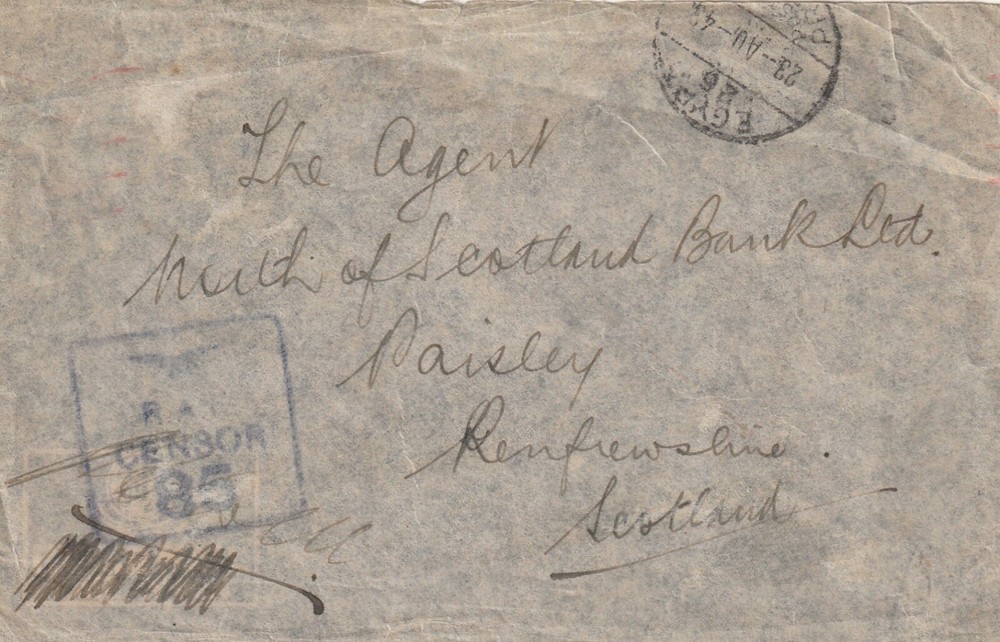 EGYPT
26
23-AU-4
The Agent
North of Scotland Bank Ltd.
Paisley
Renfrewshire.
Scotland
R.A.
CENSOR
85